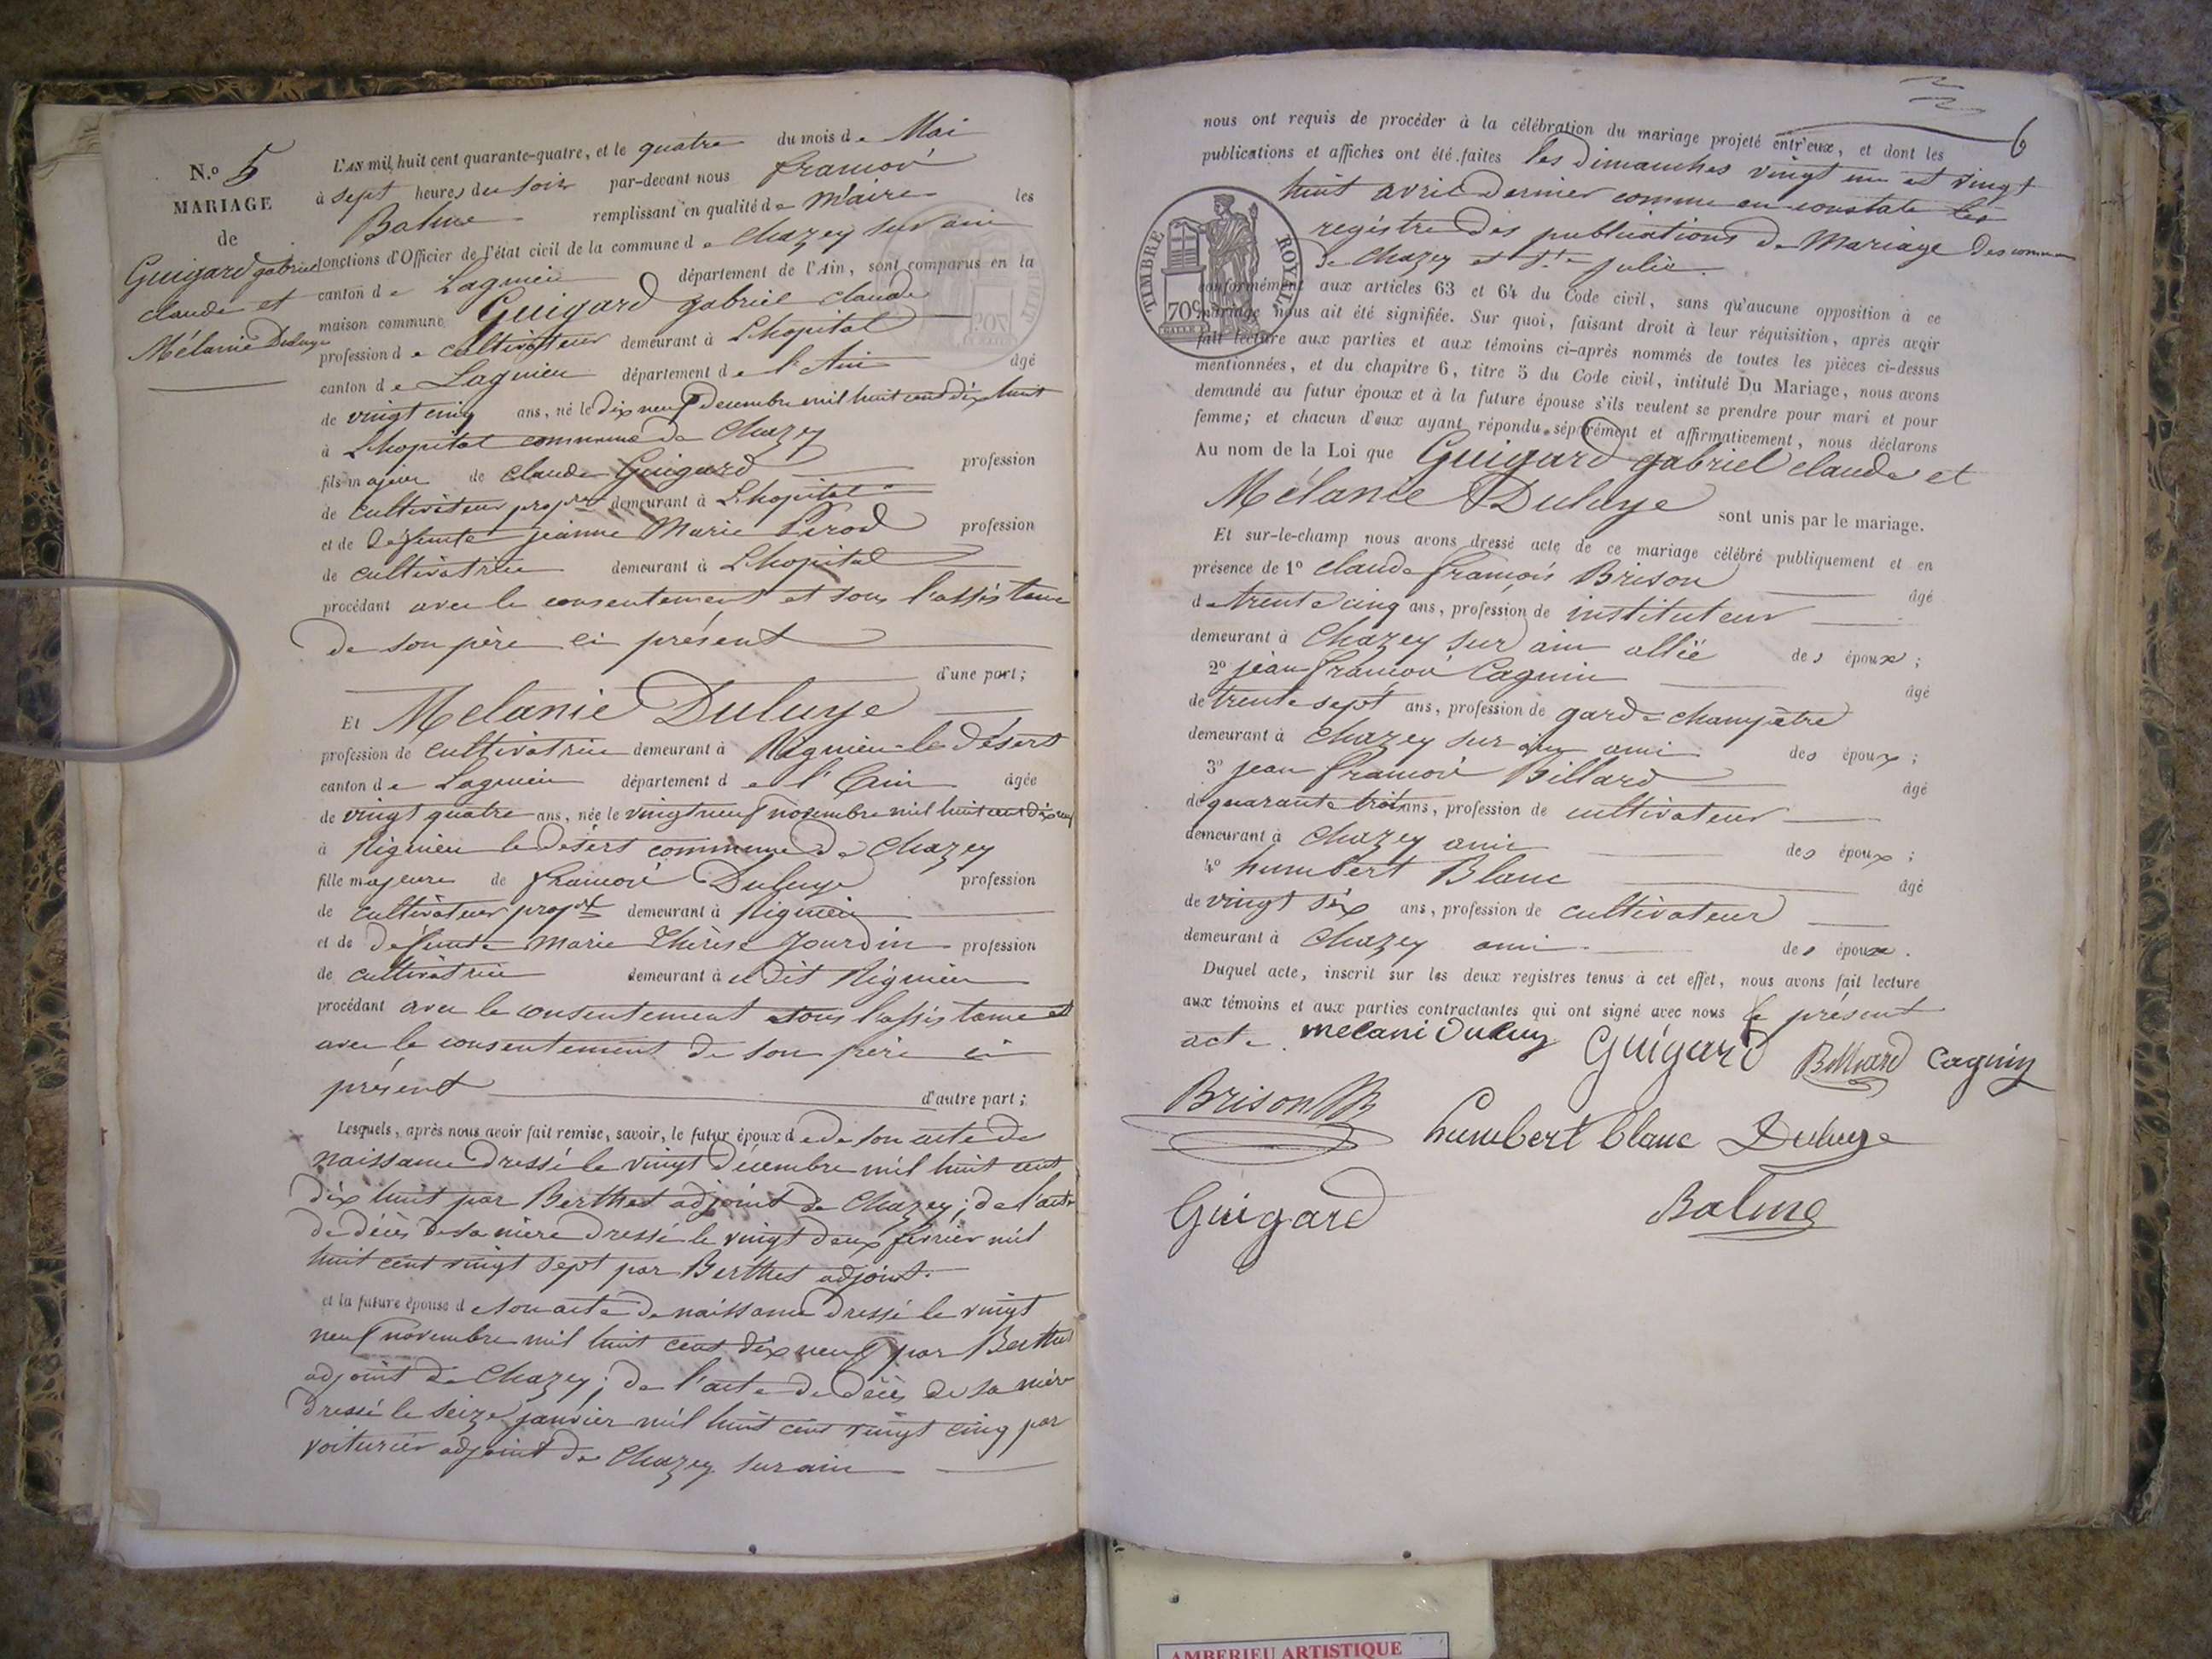 N.º 5
MARIAGE
de
Guigard gabriel
claude et
Mélanie Duluye
L'AN mil huit cent quarante-quatre, et le quatre du mois de Mai
à sept heures du soir par-devant nous françois
Balme remplissant en qualité de Maire les
fonctions d'Officier de l'état civil de la commune de Chazey sur ain
canton de Lagnieu département de l'Ain, sont comparus en la
maison commune Guigard gabriel claude
profession de cultivateur demeurant à L'hopital
canton de Lagnieu département de l'Ain âgé
de vingt cinq ans, né le dix neuf decembre mil huit cent dix huit
à L'hopital commune de Chazey
fils majeur de claude Guigard profession
de cultivateur propre demeurant à L'hopital
et de défunte jeanne Marie Perod profession
de cultivatrice demeurant à L'hopital
procédant avec le consentement et sous l'assistance
de son père ci présent
d'une part;
Et Mélanie Duluye
profession de cultivatrice demeurant à Rignieu le désert
canton de Lagnieu département de l'Ain âgée
de vingt quatre ans, née le vingt neuf novembre mil huit cent dix neuf
à Rignieu le désert commune de Chazey
fille majeure de françois Duluye profession
de cultivateur propre demeurant à Rignieu
et de défunte Marie Thérèse Jourdin profession
de cultivatrice demeurant à udit Rignieu
procédant avec le consentement sous l'assistance et
avec le consentement de son père ci
présent d'autre part;
Lesquels, après nous avoir fait remise, savoir, le futur époux d e de son acte de
naissance dressé le vingt décembre mil huit cent
dix huit par Berthet adjoint de Chazey; de l'acte
de décès de sa mère dressé le vingt deux février mil
huit cent vingt sept par Berthet adjoint.
et la future épouse de son acte de naissance dressé le vingt
neuf novembre mil huit cent dix neuf par Berthet
adjoint de Chazey; de l'acte de décès de sa mère
dressé le seize janvier mil huit cent vingt cinq par
voiturier adjoint de Chazey sur ain
6
nous ont requis de procéder à la célébration du mariage projeté entr'eux, et dont les
publications et affiches ont été faites les dimanches vingt un et vingt
huit avril dernier comme en constate les
registre des publications de Mariage des commun
de Chazey et Ste julie.
TIMBRE ROYAL
70c
conformément aux articles 63 et 64 du Code civil, sans qu'aucune opposition à ce
mariage nous ait été signifiée. Sur quoi, faisant droit à leur réquisition, après avoir
fait lecture aux parties et aux témoins ci-après nommés de toutes les pièces ci-dessus
mentionnées, et du chapitre 6, titre 5 du Code civil, intitulé Du Mariage, nous avons
demandé au futur époux et à la future épouse s'ils veulent se prendre pour mari et pour
femme; et chacun d'eux ayant répondu séparément et affirmativement, nous déclarons
Au nom de la Loi que Guigard gabriel claude et
Mélanie Duluye sont unis par le mariage.
Et sur-le-champ nous avons dressé acte de ce mariage célébré publiquement et en
présence de 1º claude françois Brison âgé
de trente cinq ans, profession de instituteur
demeurant à Chazey sur ain allié des époux;
2º jean françois Cagnin âgé
de trente sept ans, profession de garde champêtre
demeurant à Chazey sur ain ami des époux;
3º jean françois Billard âgé
de quarante trois ans, profession de cultivateur
demeurant à Chazey ami des époux;
4º humbert Blanc âgé
de vingt six ans, profession de cultivateur
demeurant à Chazey ami des époux.
Duquel acte, inscrit sur les deux registres tenus à cet effet, nous avons fait lecture
aux témoins et aux parties contractantes qui ont signé avec nous le présent
acte. melani Duluy Guigard Billiard Cagnin
Brison humbert blanc Duluye
Guigard Balme
AMBERIEU ARTISTIQUE